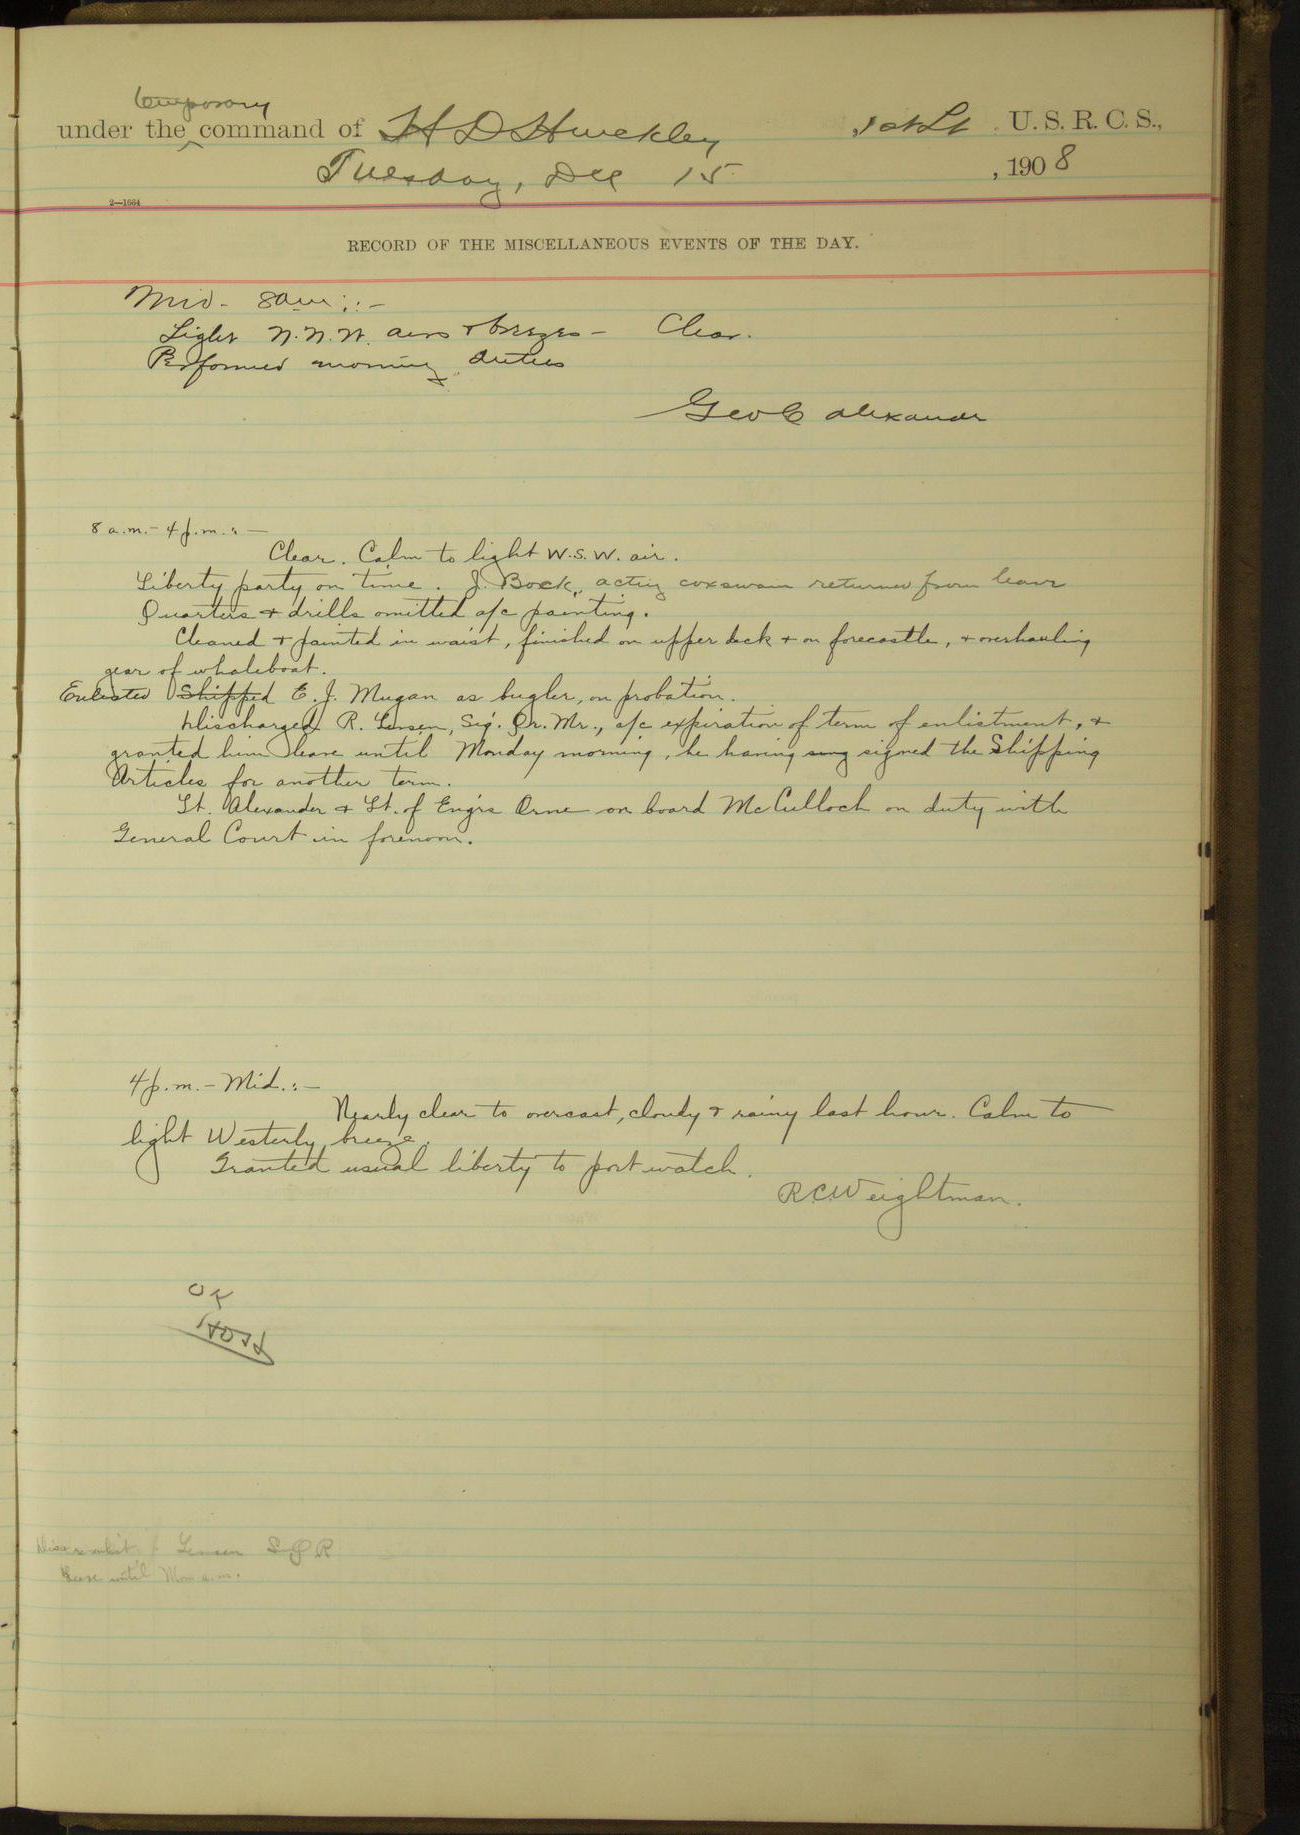 temporary
under the ^ command of H D Hinckley, 1st Lt. U. S. R. C. S.,
Tuesday, Dec 15. , 1908
2—1664
RECORD OF THE MISCELLANEOUS EVENTS OF THE DAY.
Mid - 8am :.-
Light N.N.W. airs & breezes - Clear.
Performed morning duties
Geo C Alexander
8 a.m. - 4 p.m. :-
Clear. Calm to light W.S.W. air.
Liberty party on time. J. Bock, acting coxswain returned from leave
Quarters & drills omitted a/c painting.
Cleaned & painted in waist, finished on upper deck & on forecastle, & overhauling
gear of whaleboat.
Enlisted Shipped E. J. Mugan as bugler, on probation.
Discharged R. Jensen, Sig. Qr. Mr., a/c expiration of term of enlistment, &
granted him leave until Monday morning, he having signed the Shipping
Articles for another term.
Lt. Alexander & Lt. of Eng'rs Orne on board McCulloch on duty with
General Court in forenoon.
4 p.m. - Mid. :-
Nearly clear to overcast, cloudy & rainy last hour. Calm to
light Westerly breeze.
Granted usual liberty to port watch.
R.C. Weightman.
OK
Jensen S Q R
Leave until Mon a.m.